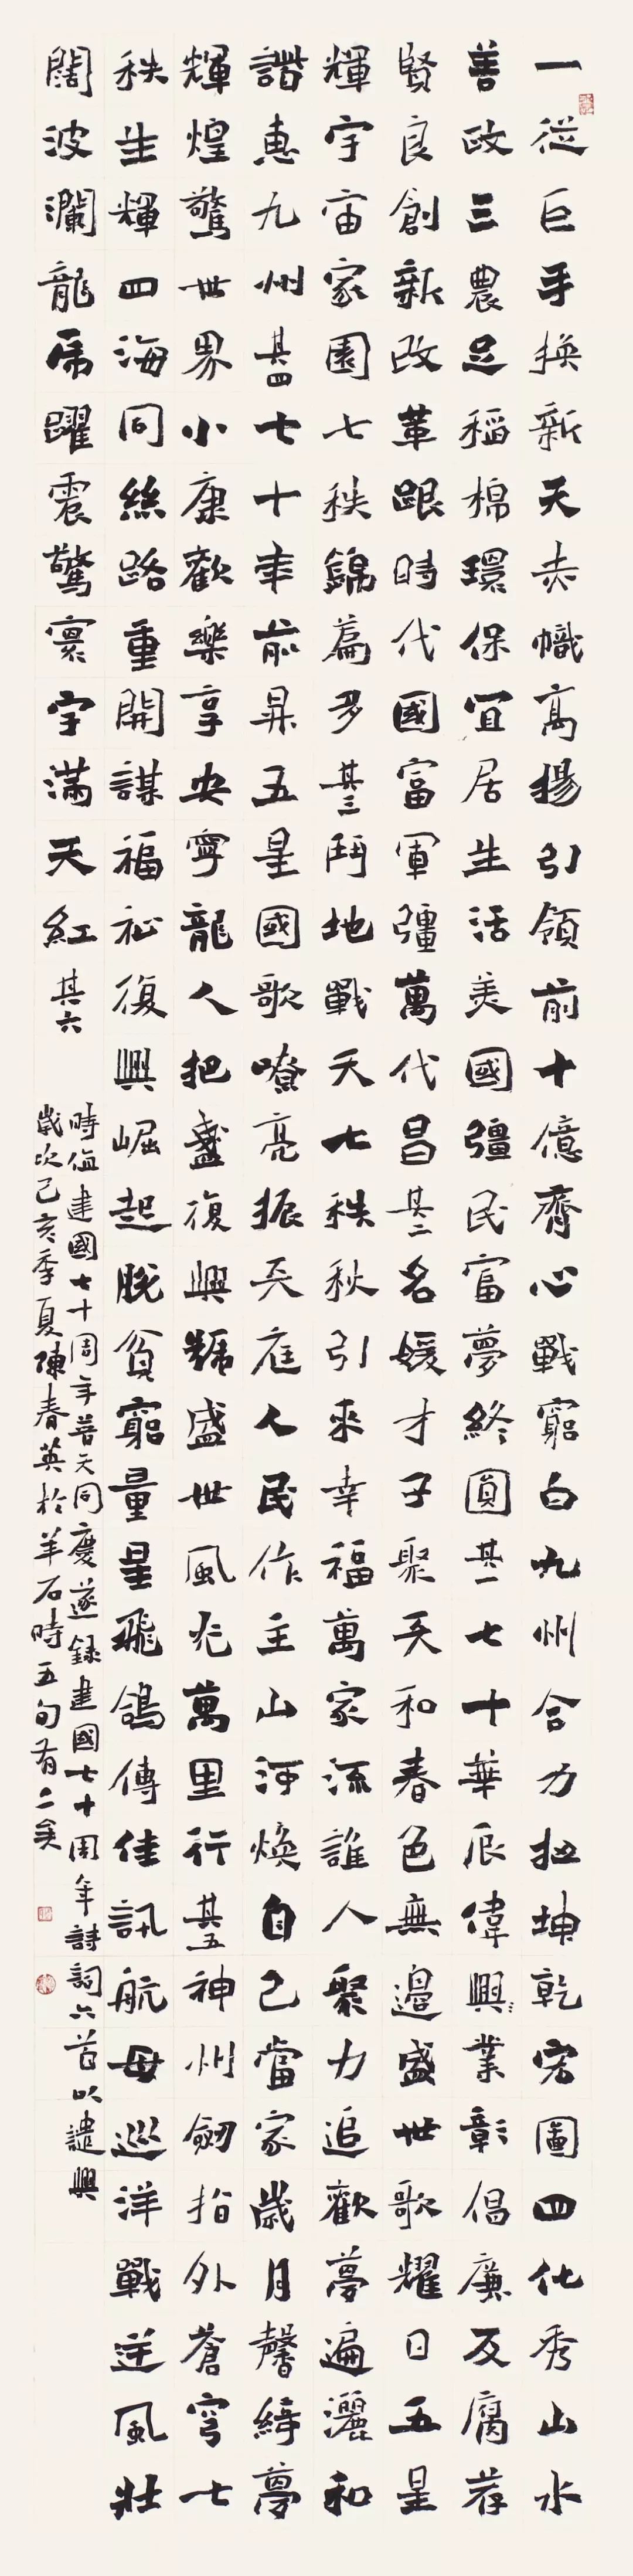 一從巨手換新天赤幟高揚引領前十億齊心戰窮白九州合力扭坤乾宏圖四化秀山水
善政三農足稻棉環保宜居生活美國彊民富夢終圓其一七十華辰偉興業彰倡廉反腐荐
賢良創新改革跟時代國富軍彊萬代昌其二名媛才子聚天和春色無邊盛世歌耀日五星
輝宇宙家園七秩錦篇多其三鬥地戰天七秩秋引來幸福萬家流誰人聚力追歡夢遍灑和
諧惠九州其四七十年前昇五星國歌嘹亮振天庭人民作主山河煥自己當家歲月馨綺夢
輝煌驚世界小康歡樂享安寧龍人把盞復興號盛世風光萬里行其五神州劍指外蒼穹七
秩生輝四海同絲路重開謀福祉復興崛起脫貧窮量星飛鴿傳佳訊航母巡洋戰逆風壯
闊波瀾龍虎躍震驚寰宇滿天紅其六
時值建國七十周年普天同慶遂録建國七十周年詩詞六首以譴興
歲次己亥季夏陳春英於羊石時五旬有二矣